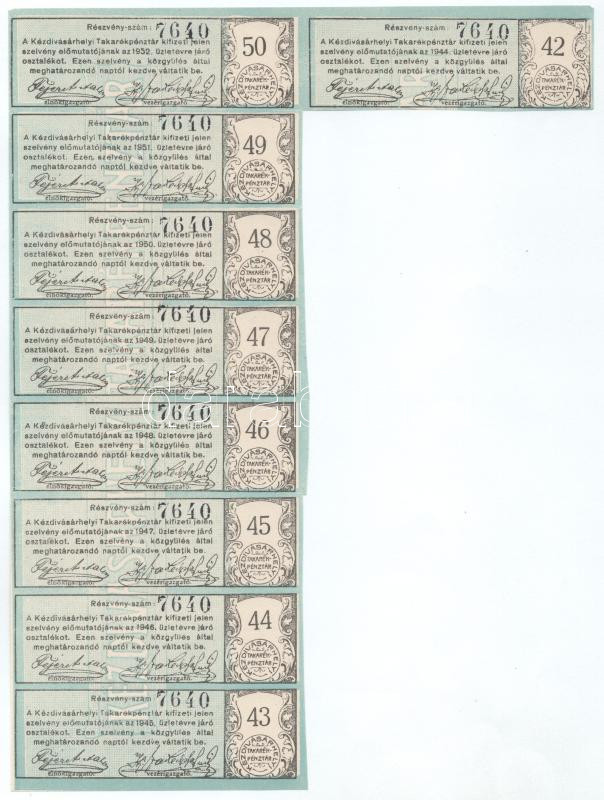 Részvény-szám: 7640
A Kézdivásárhelyi Takarékpénztár kifizeti jelen
szelvény előmutatójának az 1952. üzletévre járó
osztalékot. Ezen szelvény a közgyülés által
meghatározandó naptól kezdve váltatik be.
elnökigazgató. vezérigazgató.
50
KÉZDIVÁSÁRHELYI
TAKARÉK-
PÉNZTÁR
Részvény-szám: 7640
A Kézdivásárhelyi Takarékpénztár kifizeti jelen
szelvény előmutatójának az 1944. üzletévre járó
osztalékot. Ezen szelvény a közgyülés által
meghatározandó naptól kezdve váltatik be.
elnökigazgató. vezérigazgató.
42
KÉZDIVÁSÁRHELYI
TAKARÉK-
PÉNZTÁR
Részvény-szám: 7640
A Kézdivásárhelyi Takarékpénztár kifizeti jelen
szelvény előmutatójának az 1951. üzletévre járó
osztalékot. Ezen szelvény a közgyülés által
meghatározandó naptól kezdve váltatik be.
elnökigazgató. vezérigazgató.
49
KÉZDIVÁSÁRHELYI
TAKARÉK-
PÉNZTÁR
Részvény-szám: 7640
A Kézdivásárhelyi Takarékpénztár kifizeti jelen
szelvény előmutatójának az 1950. üzletévre járó
osztalékot. Ezen szelvény a közgyülés által
meghatározandó naptól kezdve váltatik be.
elnökigazgató. vezérigazgató.
48
KÉZDIVÁSÁRHELYI
TAKARÉK-
PÉNZTÁR
Részvény-szám: 7640
A Kézdivásárhelyi Takarékpénztár kifizeti jelen
szelvény előmutatójának az 1949. üzletévre járó
osztalékot. Ezen szelvény a közgyülés által
meghatározandó naptól kezdve váltatik be.
elnökigazgató. vezérigazgató.
47
KÉZDIVÁSÁRHELYI
TAKARÉK-
PÉNZTÁR
Részvény-szám: 7640
A Kézdivásárhelyi Takarékpénztár kifizeti jelen
szelvény előmutatójának az 1948. üzletévre járó
osztalékot. Ezen szelvény a közgyülés által
meghatározandó naptól kezdve váltatik be.
elnökigazgató. vezérigazgató.
46
KÉZDIVÁSÁRHELYI
TAKARÉK-
PÉNZTÁR
Részvény-szám: 7640
A Kézdivásárhelyi Takarékpénztár kifizeti jelen
szelvény előmutatójának az 1947. üzletévre járó
osztalékot. Ezen szelvény a közgyülés által
meghatározandó naptól kezdve váltatik be.
elnökigazgató. vezérigazgató.
45
KÉZDIVÁSÁRHELYI
TAKARÉK-
PÉNZTÁR
Részvény-szám: 7640
A Kézdivásárhelyi Takarékpénztár kifizeti jelen
szelvény előmutatójának az 1946. üzletévre járó
osztalékot. Ezen szelvény a közgyülés által
meghatározandó naptól kezdve váltatik be.
elnökigazgató. vezérigazgató.
44
KÉZDIVÁSÁRHELYI
TAKARÉK-
PÉNZTÁR
Részvény-szám: 7640
A Kézdivásárhelyi Takarékpénztár kifizeti jelen
szelvény előmutatójának az 1945. üzletévre járó
osztalékot. Ezen szelvény a közgyülés által
meghatározandó naptól kezdve váltatik be.
elnökigazgató. vezérigazgató.
43
KÉZDIVÁSÁRHELYI
TAKARÉK-
PÉNZTÁR